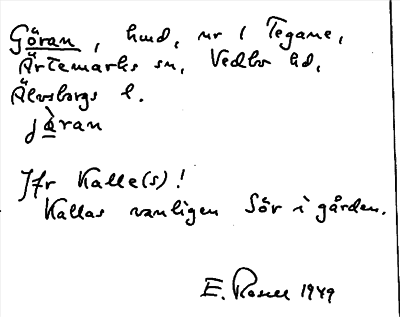 Göran, hmd, nr 1 Tegane,
Ärtemarks sn, Vedbo hd,
Älvsborgs l.
jàran
Jfr Kalle(s)!
Kallas vanligen Sör i gården.
E. Rosell 1949